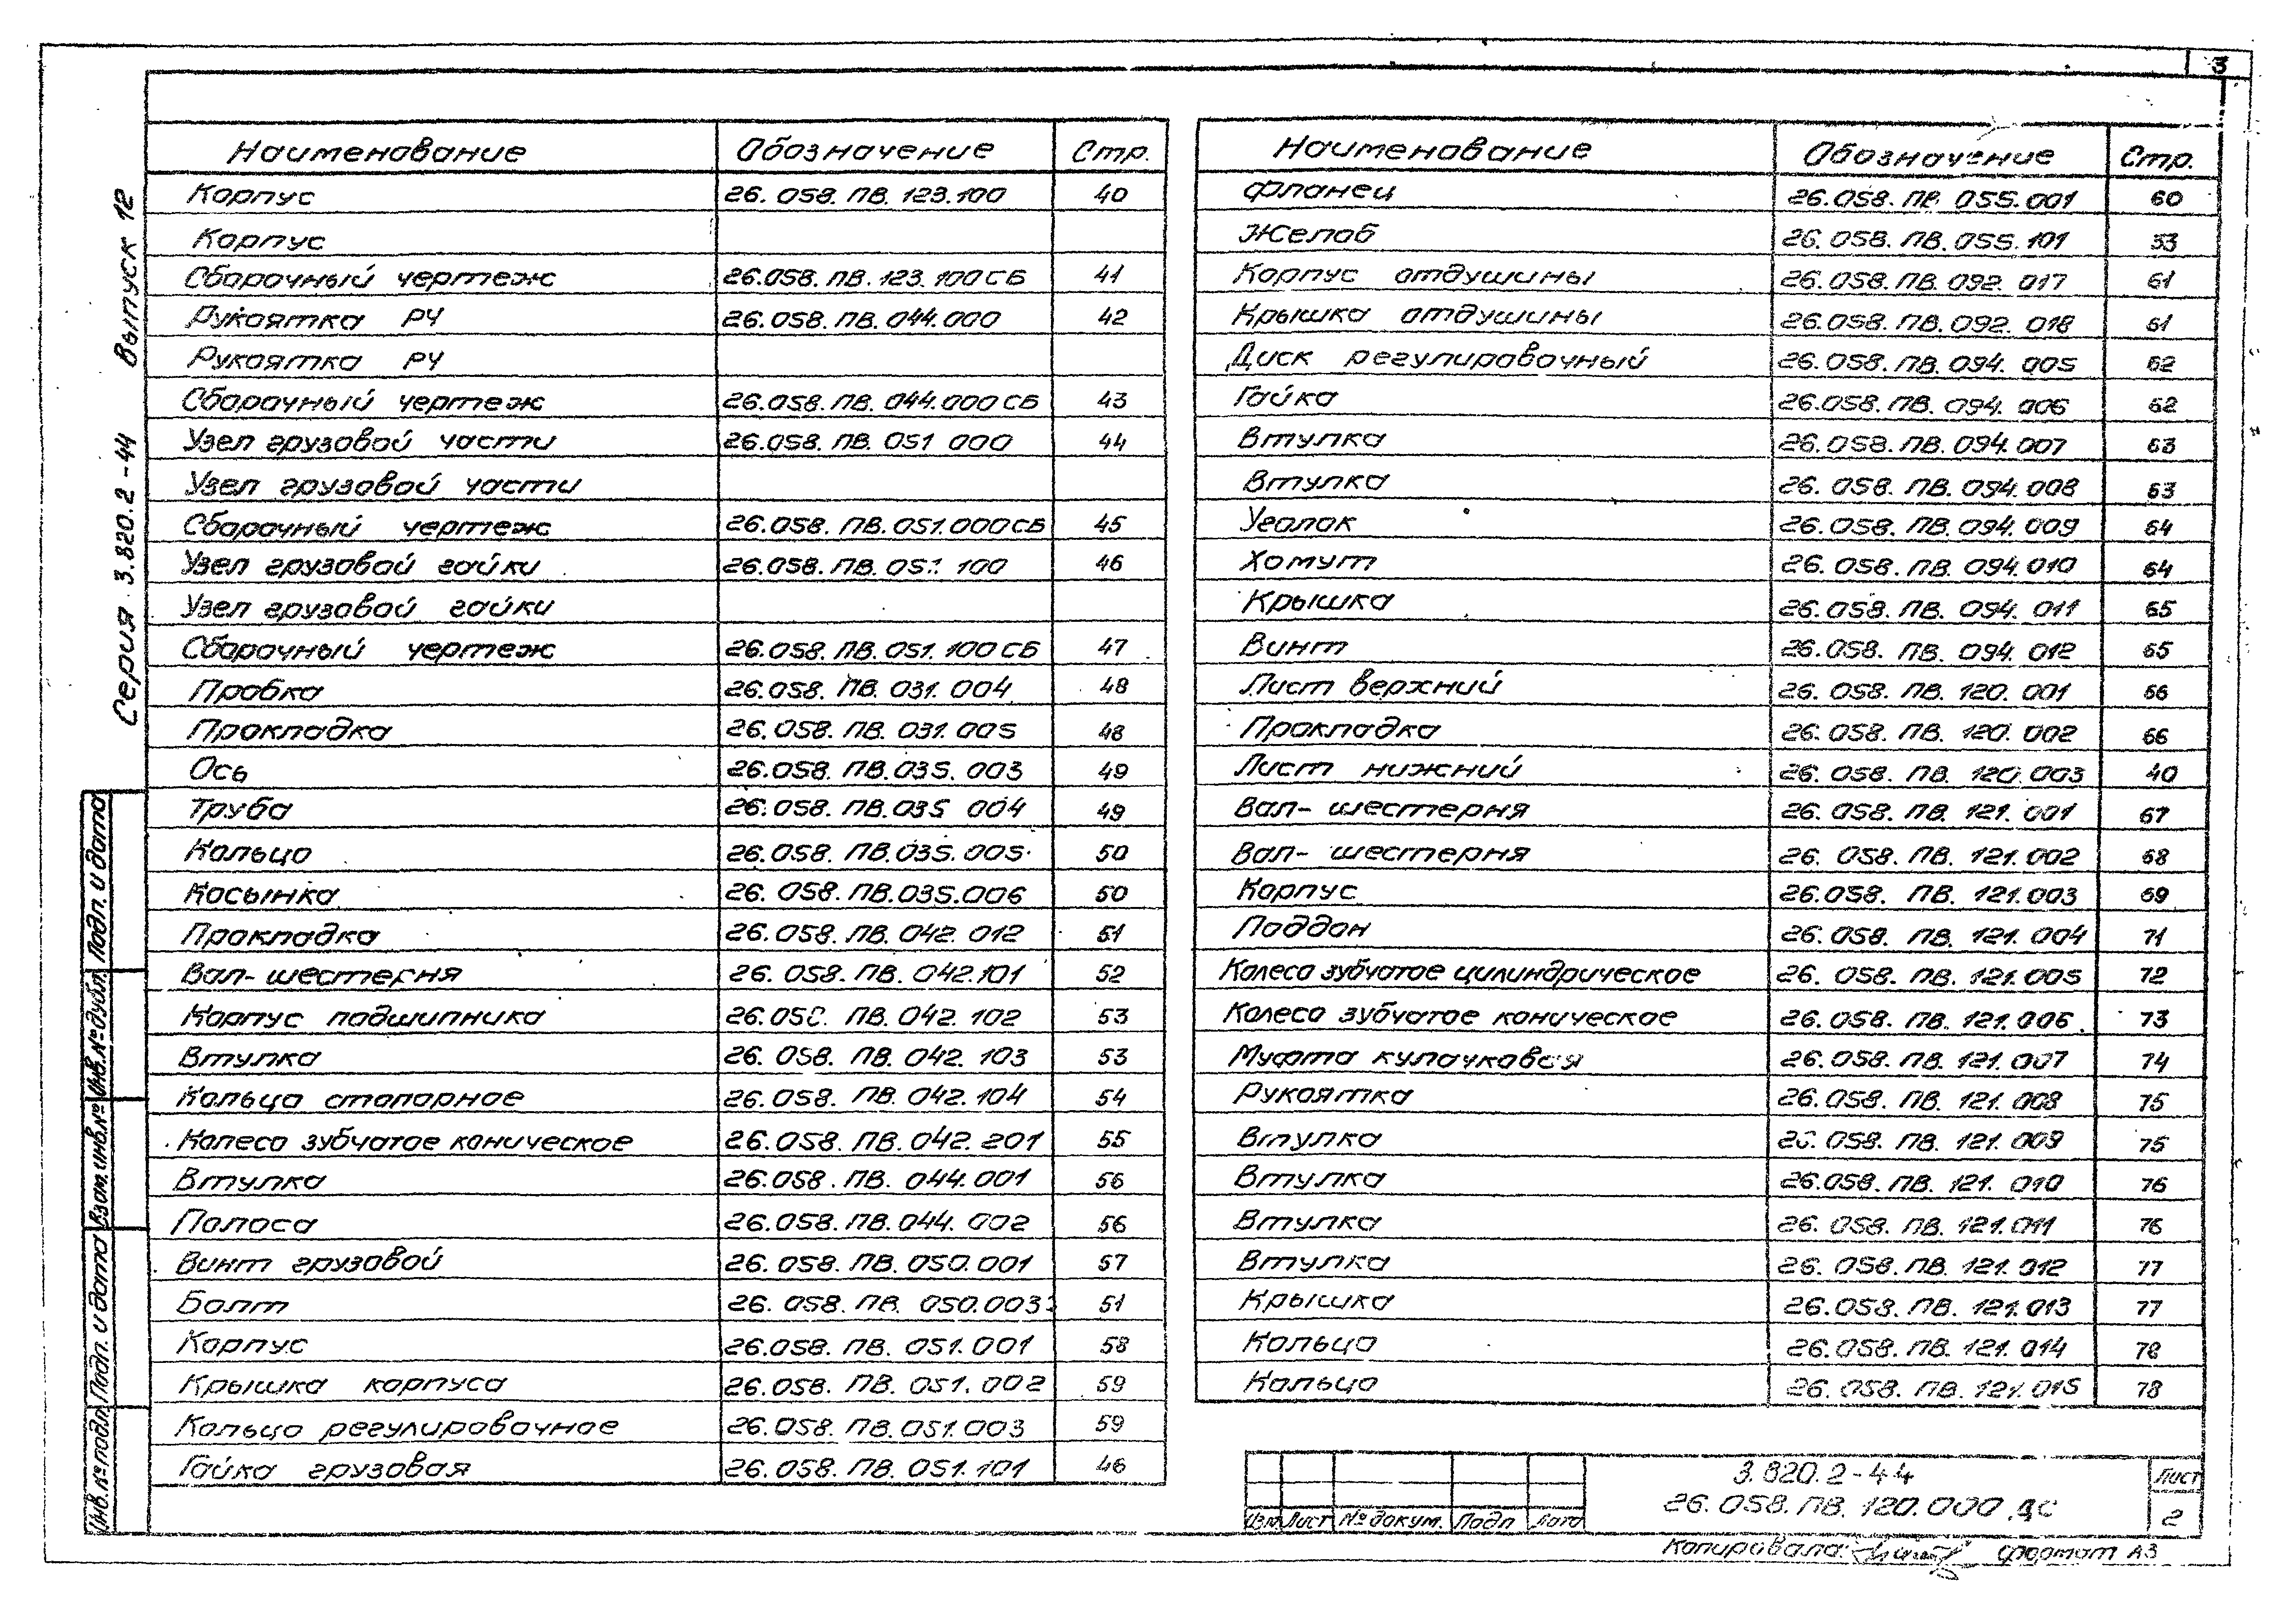 3
Серия 3.820.2-44 Выпуск 12
Наименование Обозначение Стр.
Корпус 26.058.ПВ.123.100 40
Корпус
Сборочный чертеж 26.058.ПВ.123.100СБ 41
Рукоятка РЧ 26.058.ПВ.044.000 42
Рукоятка РЧ
Сборочный чертеж 26.058.ПВ.044.000СБ 43
Узел грузовой части 26.058.ПВ.051 000 44
Узел грузовой части
Сборочный чертеж 26.058.ПВ.051.000СБ 45
Узел грузовой гайки 26.058.ПВ.051 100 46
Узел грузовой гайки
Сборочный чертеж 26.058.ПВ.051.100СБ 47
Пробка 26.058.ПВ.031.004 48
Прокладка 26.058.ПВ.031.005 48
Ось 26.058.ПВ.035.003 49
Труба 26.058.ПВ.035 004 49
Кольцо 26.058.ПВ.035.005 50
Косынка 26.058.ПВ.035.006 50
Прокладка 26.058.ПВ.042.012 51
Вал-шестерня 26.058.ПВ.042.101 52
Корпус подшипника 26.058.ПВ.042.102 53
Втулка 26.058.ПВ.042.103 53
Кольцо стопорное 26.058.ПВ.042.104 54
Колесо зубчатое коническое 26.058.ПВ.042.201 55
Втулка 26.058.ПВ.044.001 56
Полоса 26.058.ПВ.044.002 56
Винт грузовой 26.058.ПВ.050.001 57
Болт 26.058.ПВ.050.003 51
Корпус 26.058.ПВ.051.001 58
Крышка корпуса 26.058.ПВ.051.002 59
Кольцо регулировочное 26.058.ПВ.051.003 59
Гайка грузовая 26.058.ПВ.051.101 46
Наименование Обозначение Стр.
Фланец 26.058.ПВ.055.001 60
Желоб 26.058.ПВ.055.101 53
Корпус отдушины 26.058.ПВ.092.017 61
Крышка отдушины 26.058.ПВ.092.018 61
Диск регулировочный 26.058.ПВ.094.005 62
Гайка 26.058.ПВ.094.006 62
Втулка 26.058.ПВ.094.007 63
Втулка 26.058.ПВ.094.008 63
Уголок 26.058.ПВ.094.009 64
Хомут 26.058.ПВ.094.010 64
Крышка 26.058.ПВ.094.011 65
Винт 26.058.ПВ.094.012 65
Лист верхний 26.058.ПВ.120.001 66
Прокладка 26.058.ПВ.120.002 66
Лист нижний 26.058.ПВ.120.003 40
Вал-шестерня 26.058.ПВ.121.001 67
Вал-шестерня 26.058.ПВ.121.002 68
Корпус 26.058.ПВ.121.003 69
Поддон 26.058.ПВ.121.004 71
Колесо зубчатое цилиндрическое 26.058.ПВ.121.005 72
Колесо зубчатое коническое 26.058.ПВ.121.006 73
Муфта кулачковая 26.058.ПВ.121.007 74
Рукоятка 26.058.ПВ.121.008 75
Втулка 26.058.ПВ.121.009 75
Втулка 26.058.ПВ.121.010 76
Втулка 26.058.ПВ.121.011 76
Втулка 26.058.ПВ.121.012 77
Крышка 26.058.ПВ.121.013 77
Кольцо 26.058.ПВ.121.014 78
Кольцо 26.058.ПВ.121.015 78
Инв.№ подл. Подп. и дата Взам.инв.№ Инв.№ дубл. Подп. и дата
3.820.2-44
26.058.ПВ.120.000 ДС
Лист
2
Изм Лист № докум. Подп Дата
Копировала: формат А3